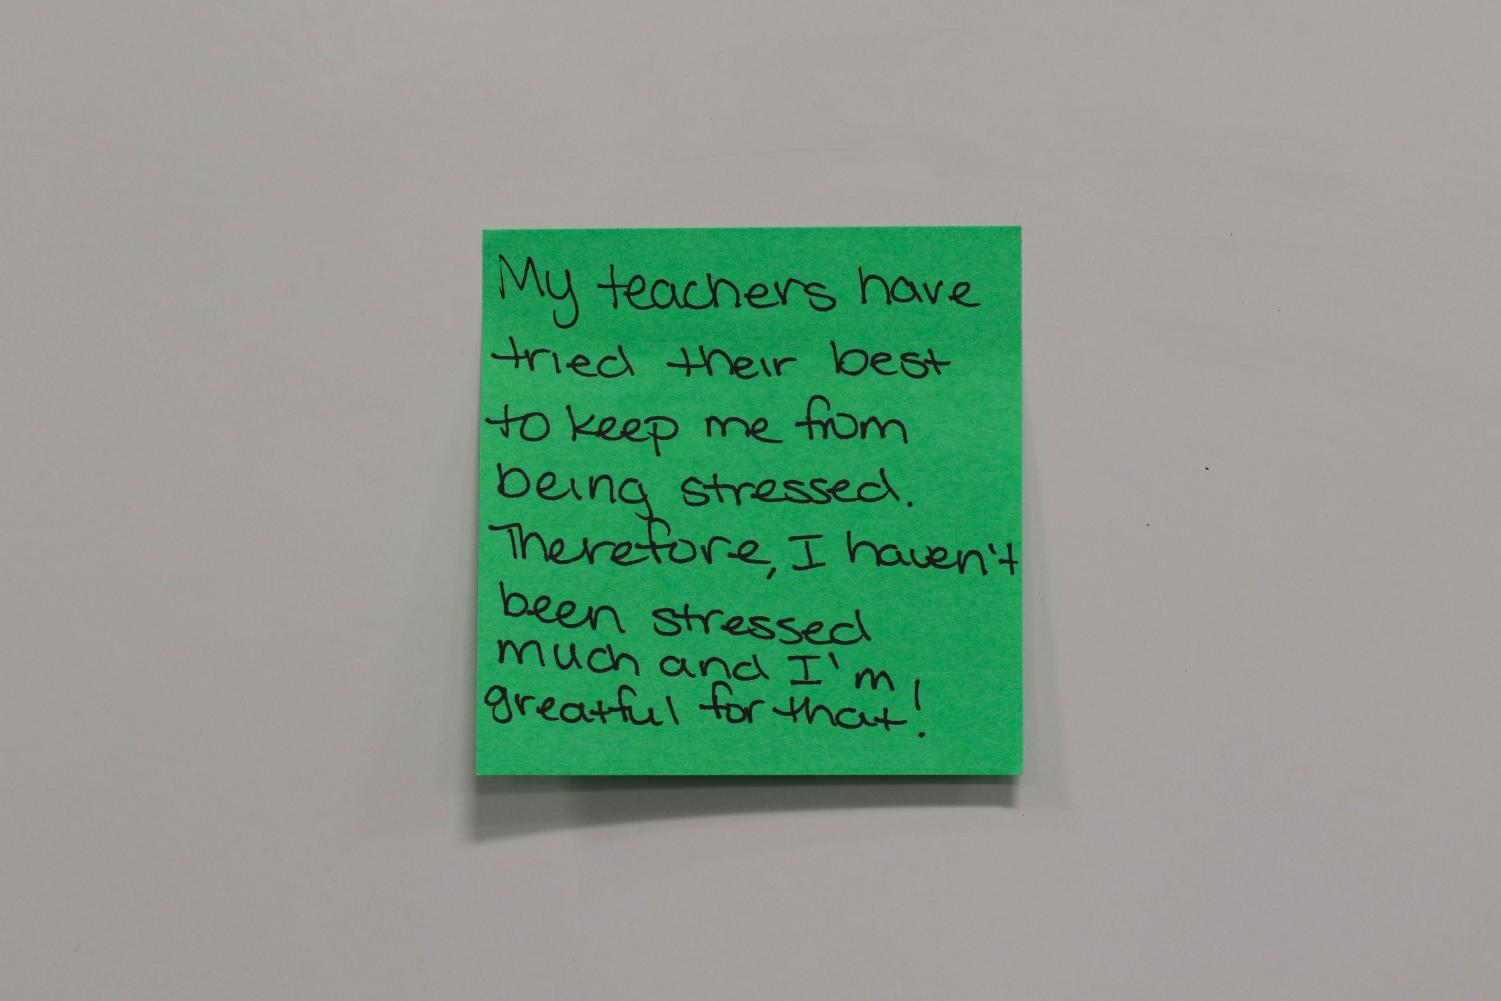 My teachers have
tried their best
to keep me from
being stressed.
Therefore, I haven't
been stressed
much and I'm
greatful for that!